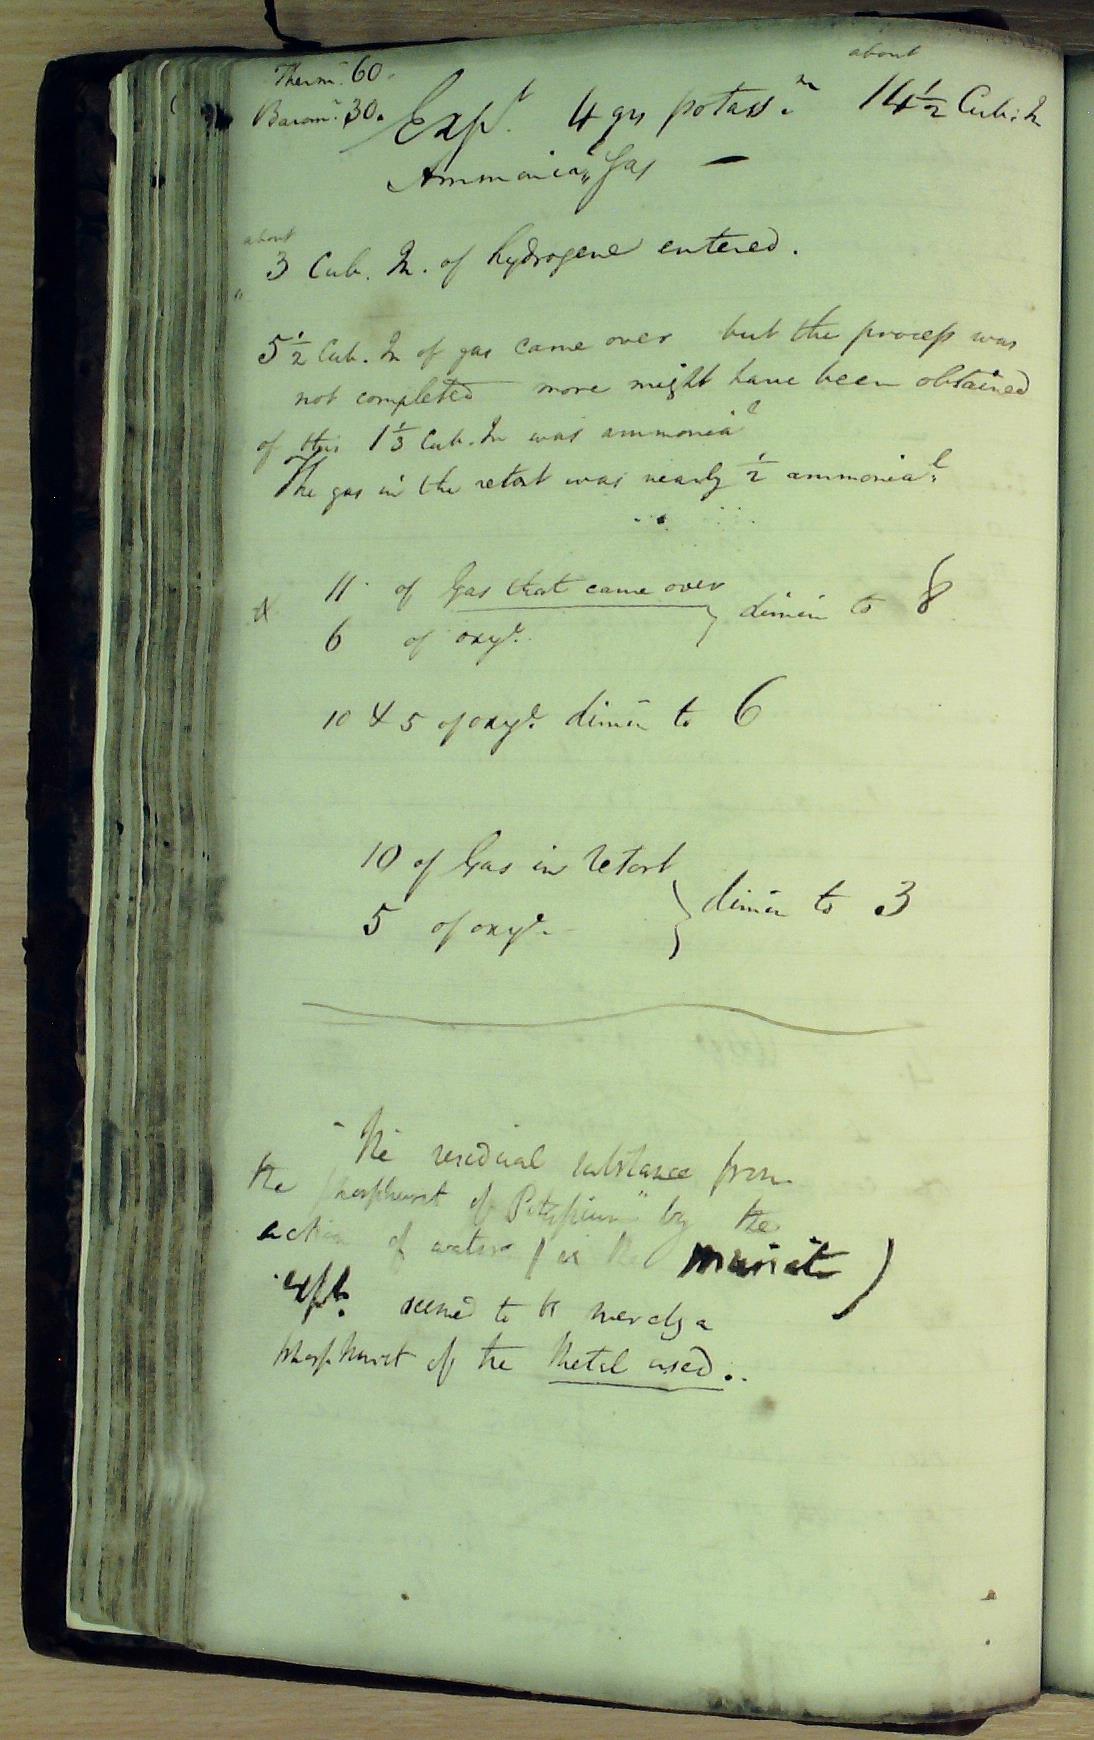 Therm.r 60.
Barom.r 30.
about
Exp.t 4 grs potass.m 14½ Cub: In
Ammonia.l Gas —
about
3 Cub. In. of hydrogene entered.
5½ Cub. In of gas came over but the process was
not completed more might have been obtained
of this 1⅓ Cub. In was ammonia.l
The gas in the retort was nearly ½ ammonia.l
11 of Gas that came over
6 of oxy.e } dimin to 8
10 & 5 of oxy.e dimin to 6
10 of Gas in retort
5 of oxy.e } dimin to 3
The residual substance from
the phosphuret of Potassium by the
action of water ( in the muriatic )
exp.t seemed to be merely a
phosphuret of the Metal used..